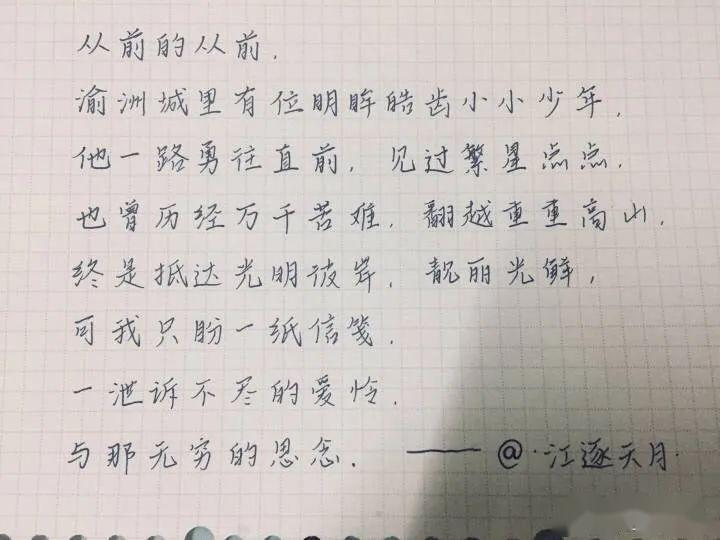 从前的从前.
渝洲城里有位明眸皓齿小小少年.
他一路勇往直前, 见过繁星点点.
也曾历经万千苦难, 翻越重重高山.
终是抵达光明彼岸, 靓丽光鲜,
可我只盼一纸信笺.
一泄诉不尽的爱怜.
与那无穷的思念. ——@·江逐天月·